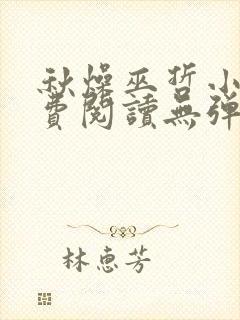 秋燥巫哲小
費閱讀無彈
林惠芳